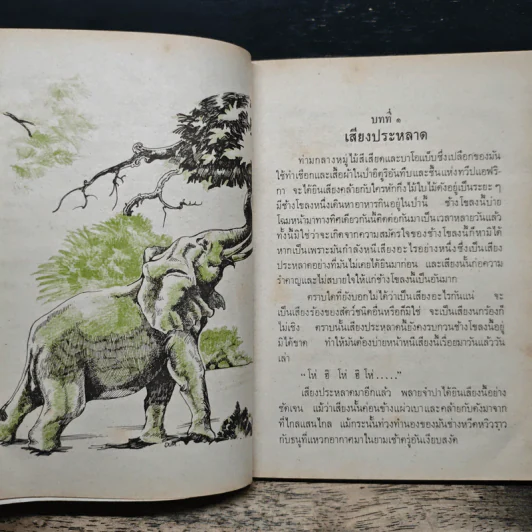 บทที่ ๑
เสียงประหลาด
ท่ามกลางหมู่ไม้สีเสียดและบาโอแบ็บซึ่งเปลือกของมัน
ใช้ทำเชือกและเสื้อผ้าในป่าอีตูรีอันทึบและชื้นแห่งทวีปแอฟริ-
กา จะได้ยินเสียงคล้ายกับใครหักกิ่งไม้ใบไม้ดังอยู่เป็นระยะ ๆ
มีช้างโขลงหนึ่งเดินหาอาหารกินอยู่ในป่านี้ ช้างโขลงนี้บ่าย
โฉมหน้ามาทางทิศเดียวกันนี้ติดต่อกันมาเป็นเวลาหลายวันแล้ว
ทั้งนี้มิใช่ว่าจะเกิดจากความสมัครใจของช้างโขลงนี้ก็หามิได้
หากเป็นเพราะมันกำลังหนีเสียงอะไรอย่างหนึ่งซึ่งเป็นเสียง
ประหลาดอย่างที่มันไม่เคยได้ยินมาก่อน และเสียงนั้นก่อความ
รำคาญและไม่สบายใจให้แก่ช้างโขลงนี้เป็นอันมาก
ตราบใดที่ยังบอกไม่ได้ว่าเป็นเสียงอะไรกันแน่ จะ
เป็นเสียงร้องของสัตว์ชนิดอื่นหรือก็มิใช่ จะเป็นเสียงนกร้องก็
ไม่เชิง ตราบนั้นเสียงประหลาดนี้ยังคงรบกวนช้างโขลงนี้อยู่
มิได้ขาด ทำให้มันต้องบ่ายหน้าหนีเสียงนี้เรื่อยมาวันแล้ววัน
เล่า
"โห่ ฮี โห่ ฮี โห่ ....."
เสียงประหลาดมาอีกแล้ว พลายจำปาได้ยินเสียงนี้อย่าง
ชัดเจน แม้ว่าเสียงนั้นค่อนข้างแผ่วเบาและคล้ายกับดังมาจาก
ที่ไกลแสนไกล แม้กระนั้นท่วงทำนองของมันช่างหวีดหวิวราว
กับธนูที่แหวกอากาศมาในยามเช้าตรู่อันเงียบสงัด